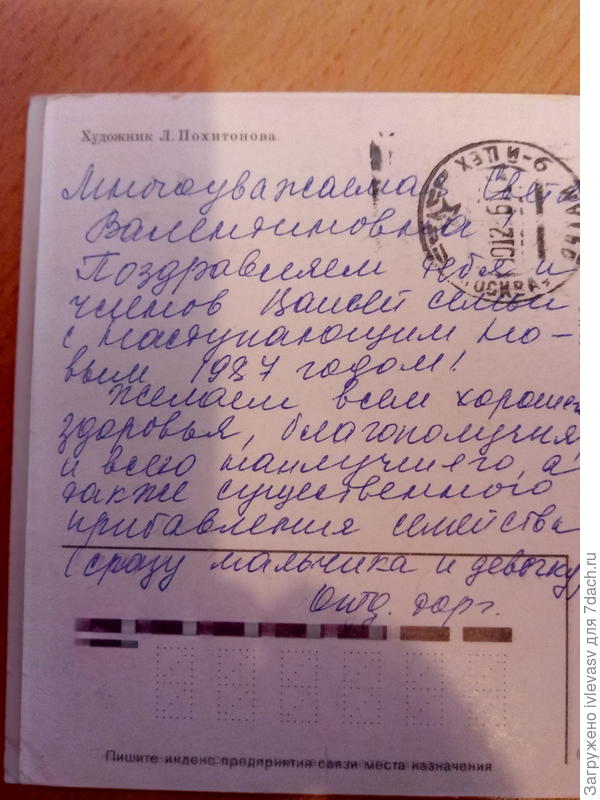 Художник Л. Похитонова
Многоуважаемая Света
Валентиновна
Поздравляем тебя и
членов Вашей семьи
с наступающим Но-
вым 1987 годом!
Желаем всем хорошего
здоровья, благополучия,
и всего наилучшего, а
также существенного
прибавления семейства
(сразу мальчика и девочку)
Пишите индекс предприятия связи места назначения
МОСКВА
ПОЧТАМТ
Загружено ivlevasv для 7dach.ru